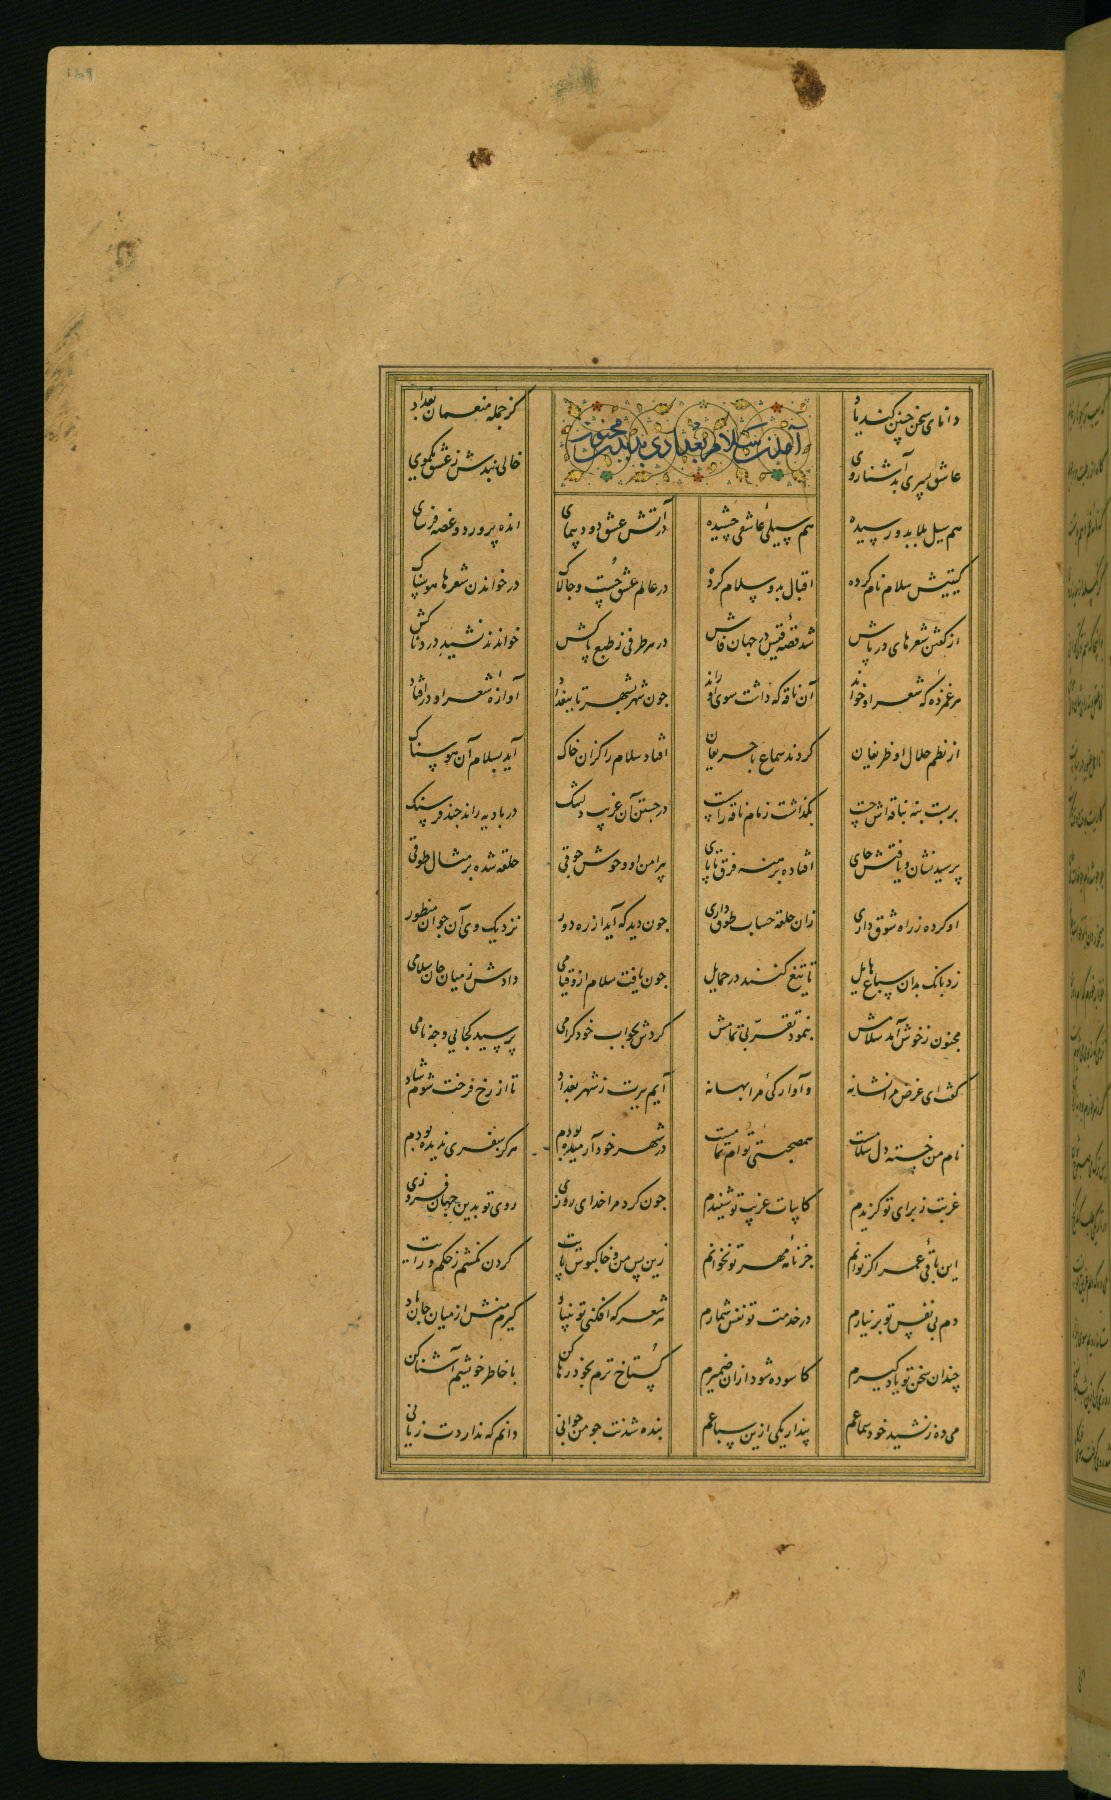 آمدن سلام بغدادی بدیدن مجنون
دانای سخن چنین کند یاد
کز جمله منعمان بغداد
عاشق پسری بد آشنا روی
خالی نبدش ز عشق یکموی
هم سیل بلا بدو رسیده
هم سیلی عاشقی چشیده
در آتش عشق دود پیمای
انده پرورد و غصه فرسای
گیتیش سلام نام کرده
اقبال بدو سلام کرده
در عالم عشق چست و چالاک
در خواندن شعرها هوسناک
از گفتن شعرهای در پاش
شد قصه قیس در جهان فاش
در هر طرفی ز طبع پاکش
خواندند نشید دردناکش
هر غمزده که شعر او خواند
آن ناقه که داشت سوی او راند
چون شهر بشهر تا ببغداد
آوازه شعر او در افتاد
از نظم حلال او ظریفان
کردند سماع با حریفان
افتاد سلام را کزان خاک
آید بسلام آن هوسناک
بربست بنه بناقه‌اش چست
بگذاشت زمام ناقه راست
در جستن آن غریب دلتنگ
در بادیه راند چند فرسنگ
پرسید نشان و یافتش جای
افتاده برهنه فرق تا پای
پیرامن او وحوش جوقی
حلقه شده بر مثال طوقی
او کرده ز راه شوق داری
زان حلقه حساب طوق داری
چون دید که آید از ره دور
نزدیک وی آن جوان منظور
زد بانگ بدان سباع هایل
تا تیغ کنند در حمایل
چون یافت سلام ازو قیامی
دادش ز میان جان سلامی
مجنون ز خوش آمد سلامش
بنمود تقربی تمامش
کردش بجواب خود گرامی
پرسید کجایی و چه نامی
گفت ای غرض مرا نشانه
و آوارگی مرا بهانه
آیم برت ز شهر بغداد
تا از رخ فرخت شوم شاد
نام من خسته دل سلامست
همصحبتی توام تمامست
در شهر خود آرمیده بودم
هرگز سفری ندیده بودم
غربت ز برای تو گزیدم
کابیات غریب تو شنیدم
چون کرد مرا خدای روزی
روی تو بدین جهان فروزی
این باقی عمر اگر توانم
جز نامه مهر تو نخوانم
زین پس من و خاکبوس پایت
گردن نکشم ز حکم و رایت
دم بی نفس تو بر نیارم
در خدمت تو نفس شمارم
هر شعر که افکنی تو بنیاد
گیرم منش از میان جان یاد
چندان سخن تو یاد گیرم
کاسوده شود ازان ضمیرم
گستاخ ترم بخود رها کن
با خاطر خویشم آشنا کن
می ده ز نشید خود سماعم
پندار یکی ازین سباعم
بنده شدنت چو من جوانی
دانم که نداردت زیانی